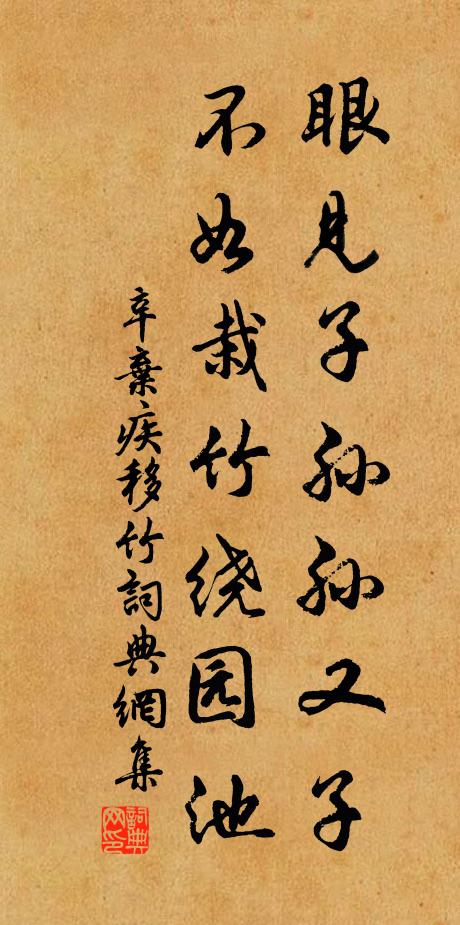 眼见子孙孙又子
不如栽竹绕园池
辛棄疾移竹詞典網集
詞典网印